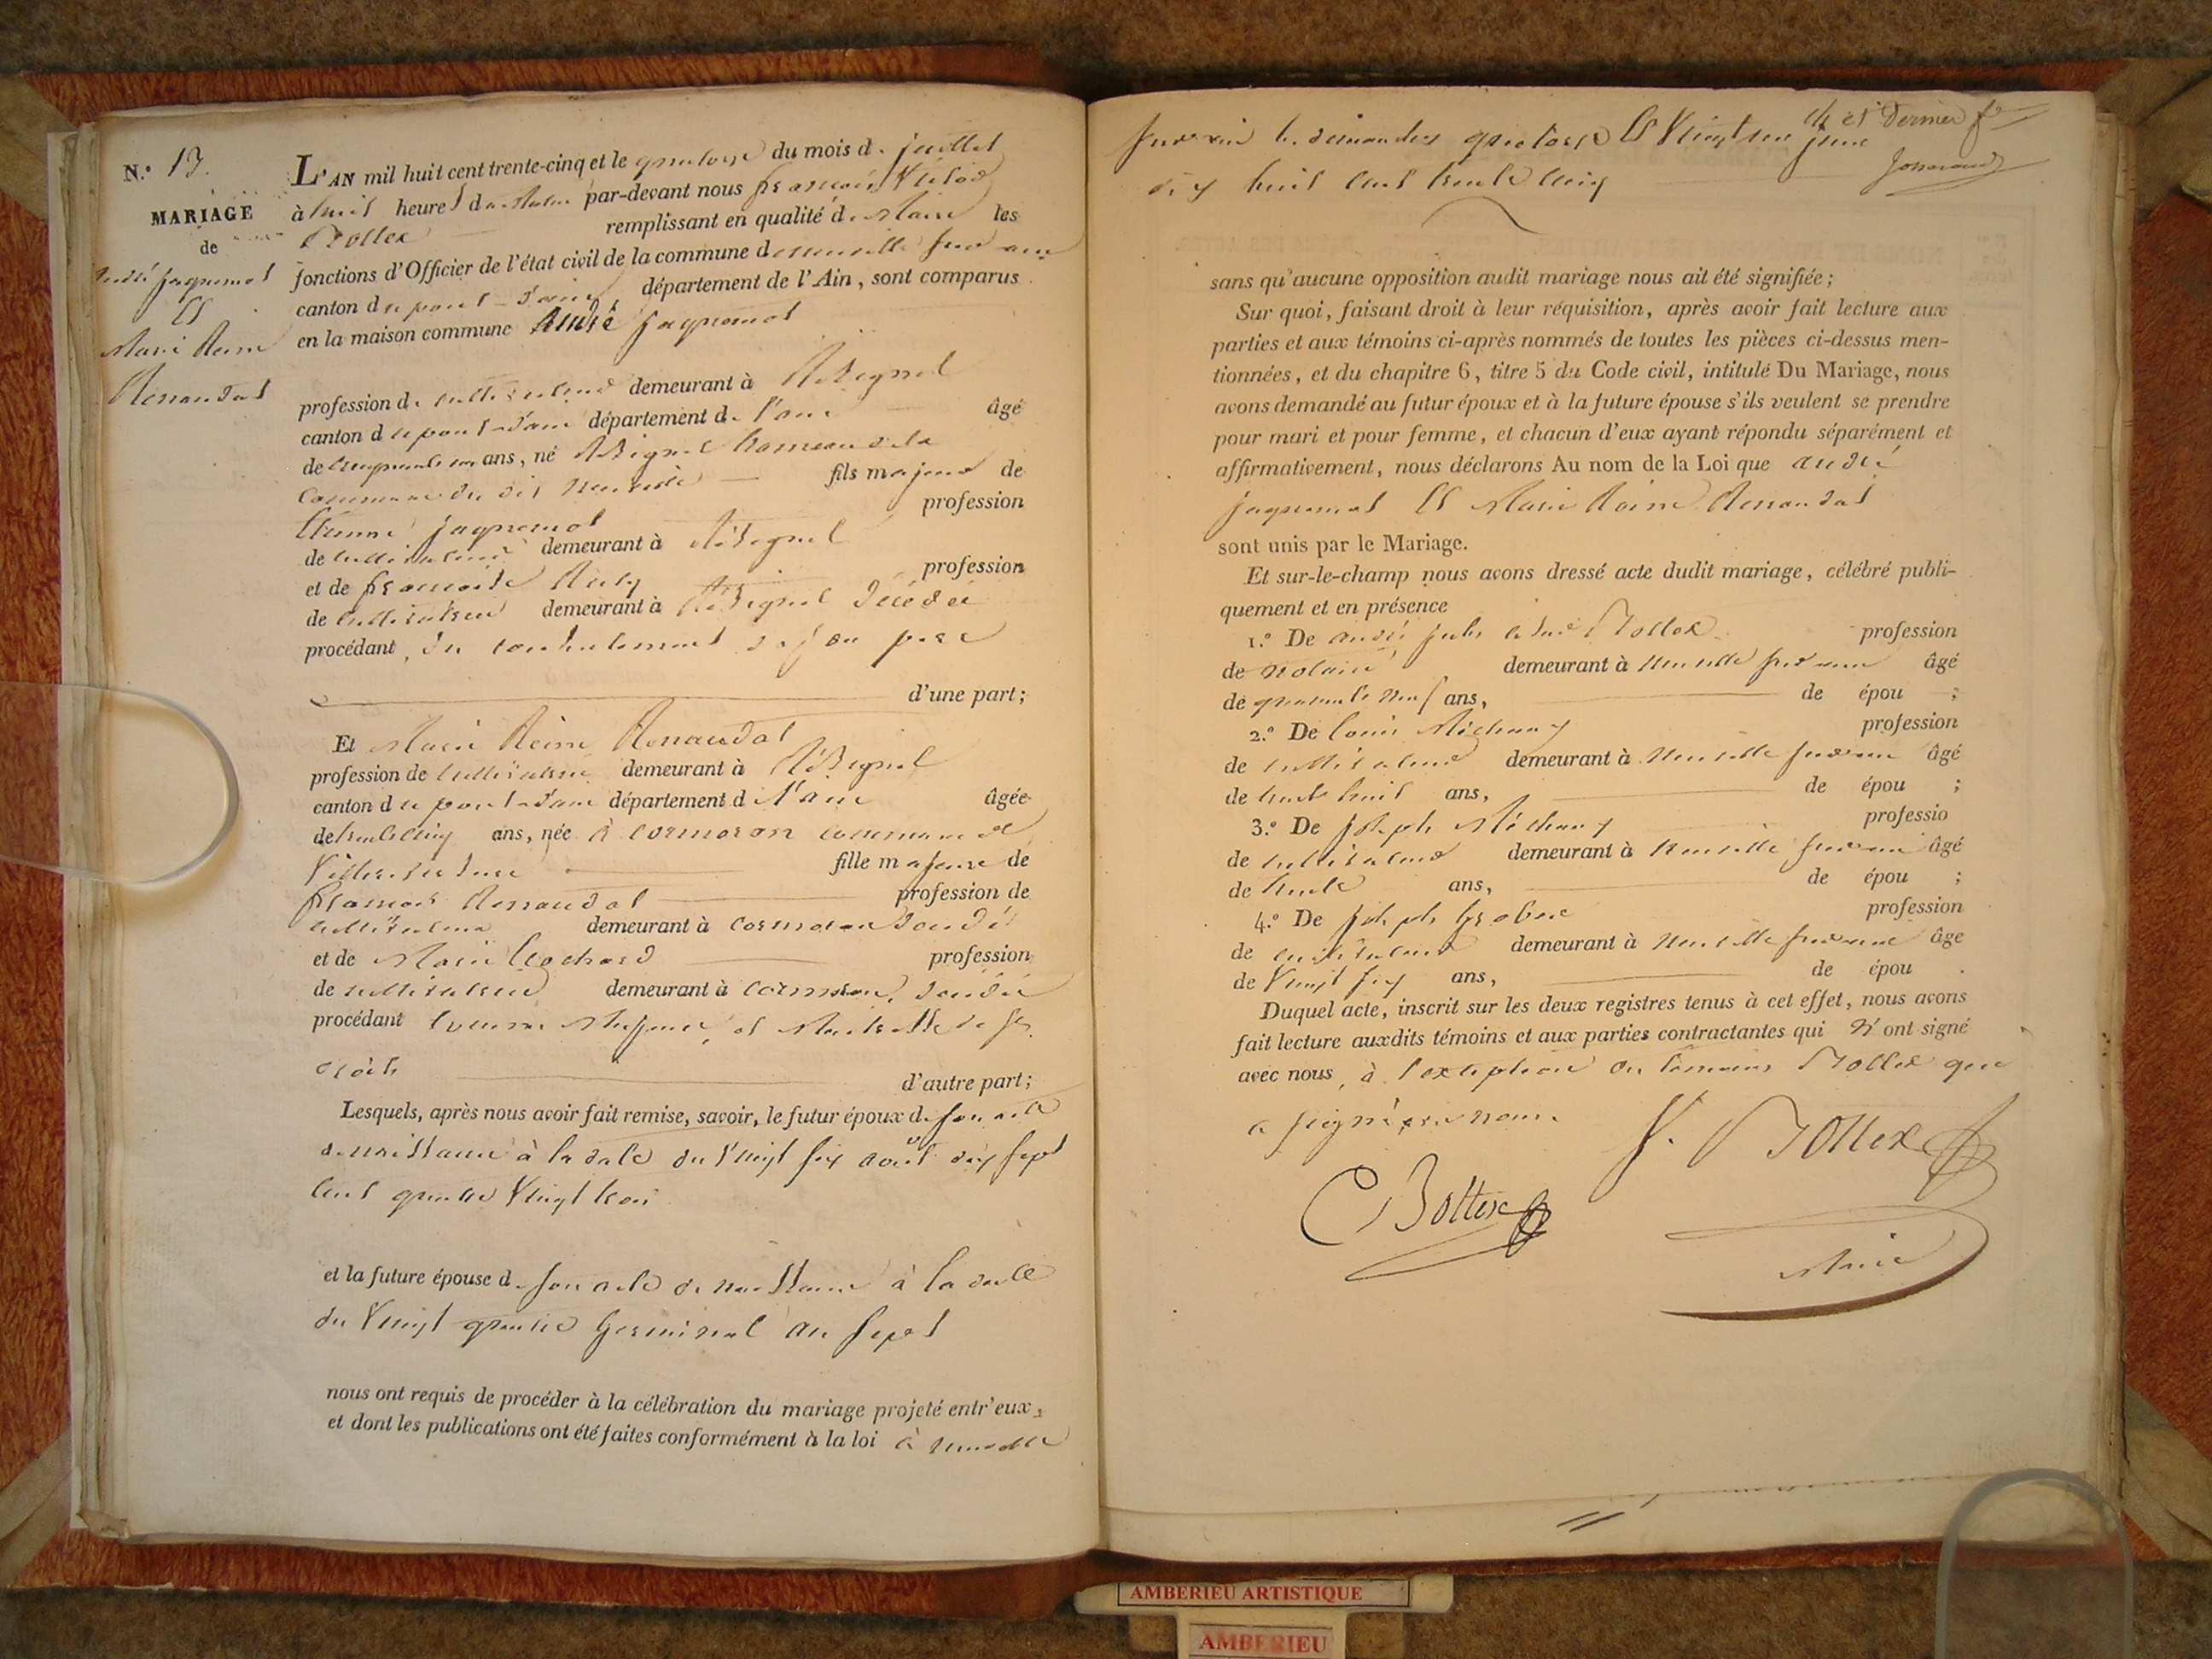 N.° 13.
MARIAGE
de
André Jaquemot
Et
Marie Reine
Renaudat
L'AN mil huit cent trente-cinq et le quatorze du mois de juillet
à huit heures du Matin par-devant nous françois
Bottex remplissant en qualité de Maire les
fonctions d'Officier de l'état civil de la commune de neuville sur ain
canton du pont-d'ain département de l'Ain, sont comparus
en la maison commune André Jaquemot
profession de cultivateur demeurant à
canton du pont-d'ain département de l'ain âgé
de cinquante un ans, né hameau de la
commune du dit neuville fils majeur de
Etienne Jaquemot profession
de cultivateur demeurant à
et de françoise profession
de cultivatrice demeurant à décédée
procédant du consentement de son père
d'une part;
Et Marie Reine Renaudat
profession de cultivatrice demeurant à
canton du pont-d'ain département de l'ain âgée
de trente cinq ans, née à cormoran commune de
Villereversure fille majeure de
françois Renaudat profession de
cultivateur demeurant à cormoran
et de Marie profession
de cultivatrice demeurant à cormoran,
procédant comme Majeure et Maitresse de ses
droits d'autre part;
Lesquels, après nous avoir fait remise, savoir, le futur époux de son acte
de naissance à la date du Vingt six août dix sept
cent quatre Vingt trois
et la future épouse de son acte de naissance à la date
du Vingt quatre Germinal an sept
nous ont requis de procéder à la célébration du mariage projeté entr'eux,
et dont les publications ont été faites conformément à la loi à neuville
et dernier
sur ain les dimanches quatorze Et Vingt un juin
dix huit cent trente cinq
sans qu'aucune opposition audit mariage nous ait été signifiée;
Sur quoi, faisant droit à leur réquisition, après avoir fait lecture aux
parties et aux témoins ci-après nommés de toutes les pièces ci-dessus men-
tionnées, et du chapitre 6, titre 5 du Code civil, intitulé Du Mariage, nous
avons demandé au futur époux et à la future épouse s'ils veulent se prendre
pour mari et pour femme, et chacun d'eux ayant répondu séparément et
affirmativement, nous déclarons Au nom de la Loi que André
Jaquemot Et Marie Reine Renaudat
sont unis par le Mariage.
Et sur-le-champ nous avons dressé acte dudit mariage, célébré publi-
quement et en présence
1.° De André Jules Bottex profession
de notaire demeurant à Neuville sur ain âgé
de quarante neuf ans, de épou ;
2.° De Louis profession
de cultivateur demeurant à Neuville sur ain âgé
de trente huit ans, de épou ;
3.° De Joseph professio
de cultivateur demeurant à Neuville sur ain âgé
de trente ans, de épou ;
4.° De Joseph profession
de cultivateur demeurant à Neuville sur ain âge
de Vingt six ans, de épou .
Duquel acte, inscrit sur les deux registres tenus à cet effet, nous avons
fait lecture auxdits témoins et aux parties contractantes qui N'ont signé
avec nous, à l'exception du témoin Bottex qui
a signé avec nous.
C Bottex
f. Bottex
Maire
AMBERIEU ARTISTIQUE
AMBERIEU